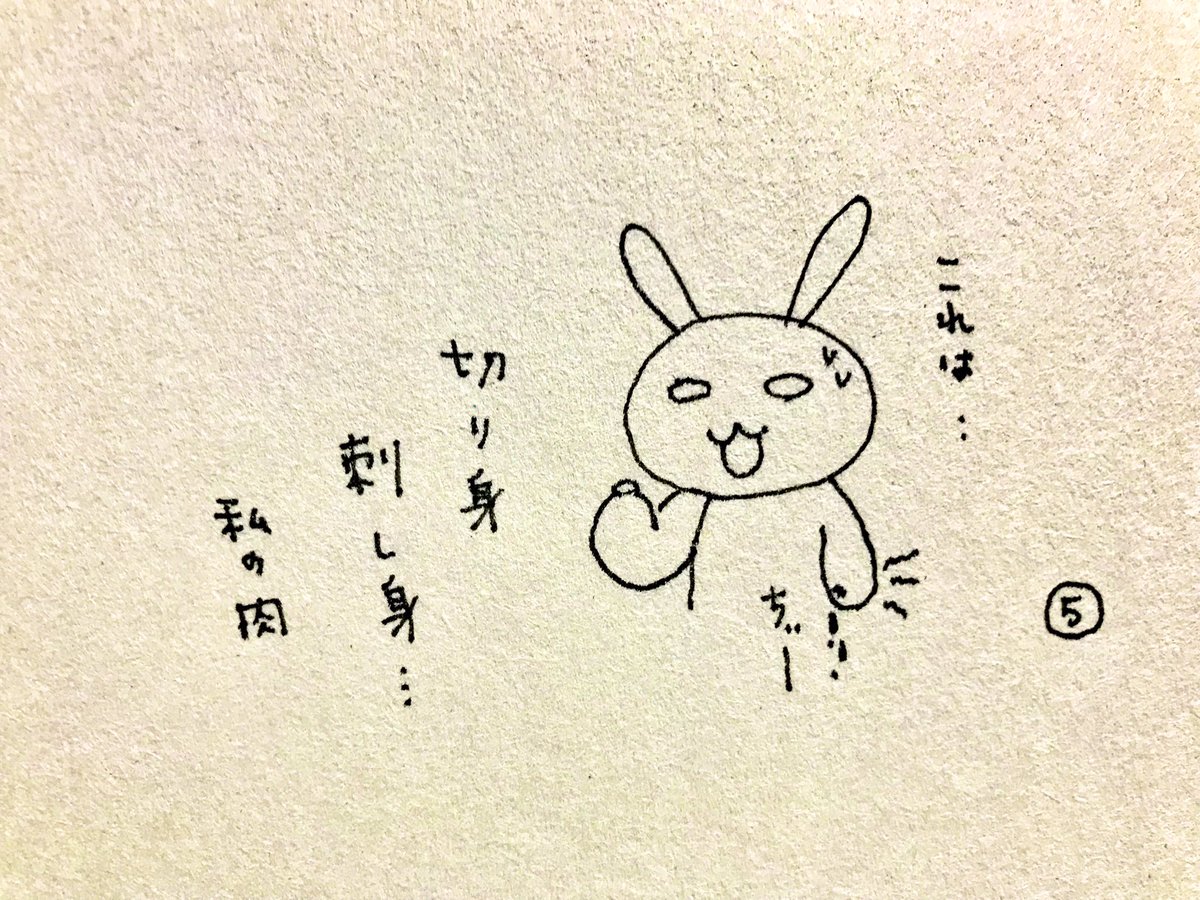 これは…
⑤
ぢー
切り身
刺し身…
私の肉